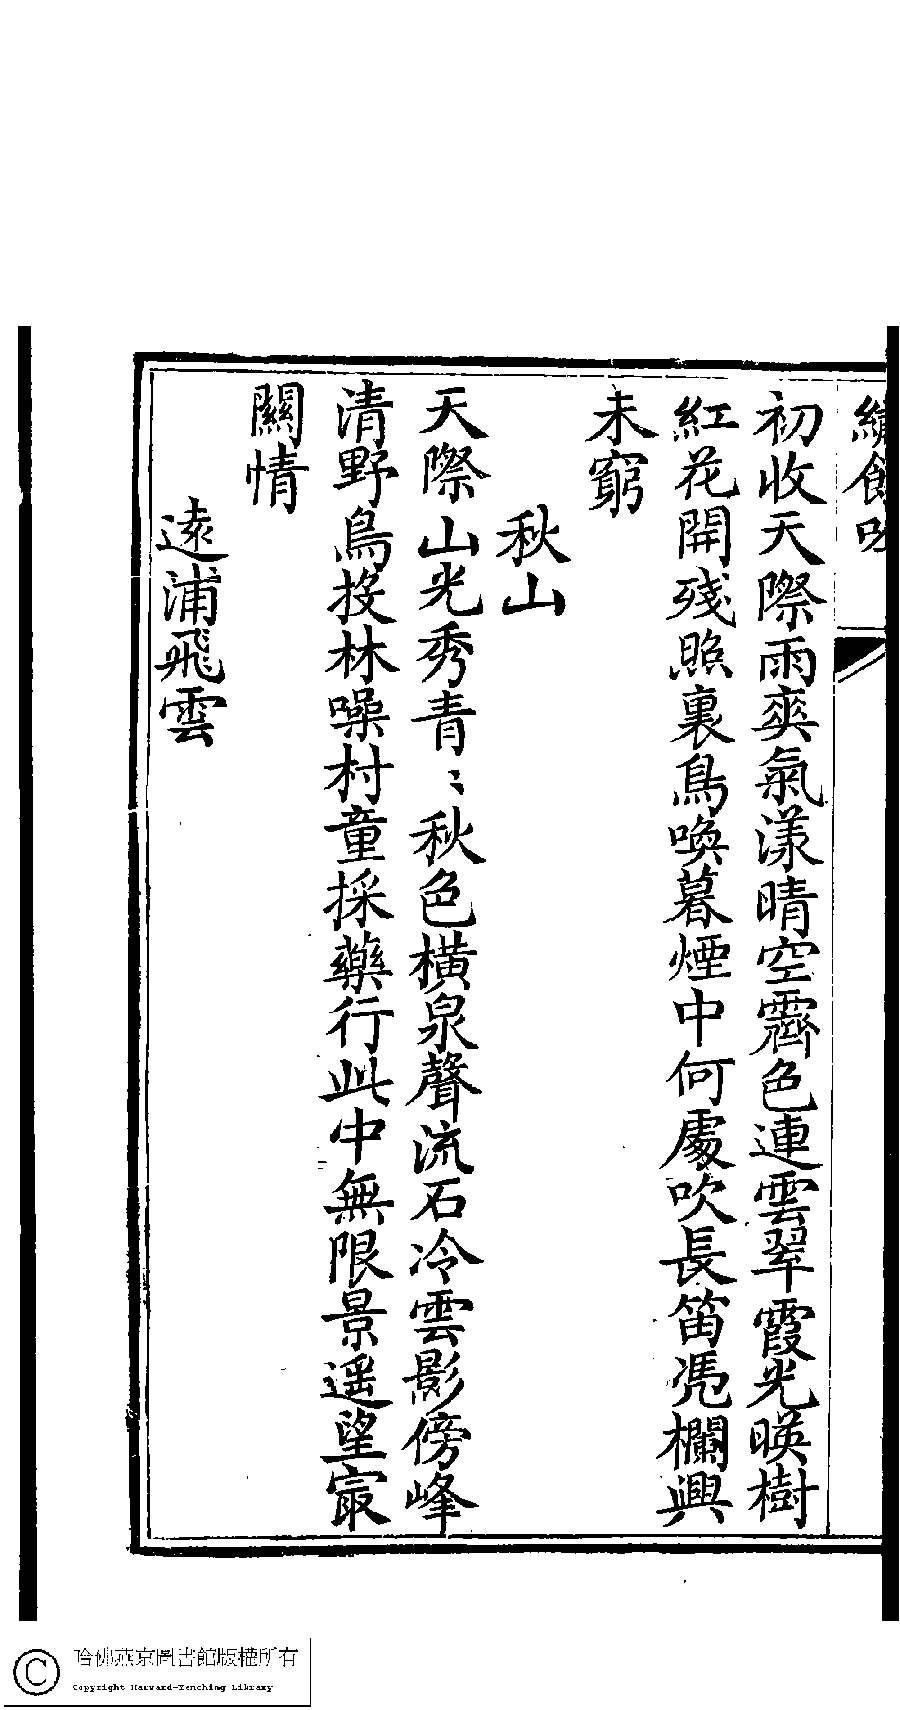 繡餘吟
初收天際雨爽氣漾晴空霽色連雲翠霞光暎樹
紅花開殘照裏鳥喚暮煙中何處吹長笛凴欄興
未窮
秋山
天際山光秀青〻秋色橫泉聲流石冷雲影傍峰
清野鳥投林噪村童採藥行此中無限景遥望㝡
關情
遠浦飛雲
哈佛燕京圖書館版權所有
Copyright Harvard-Yenching Library